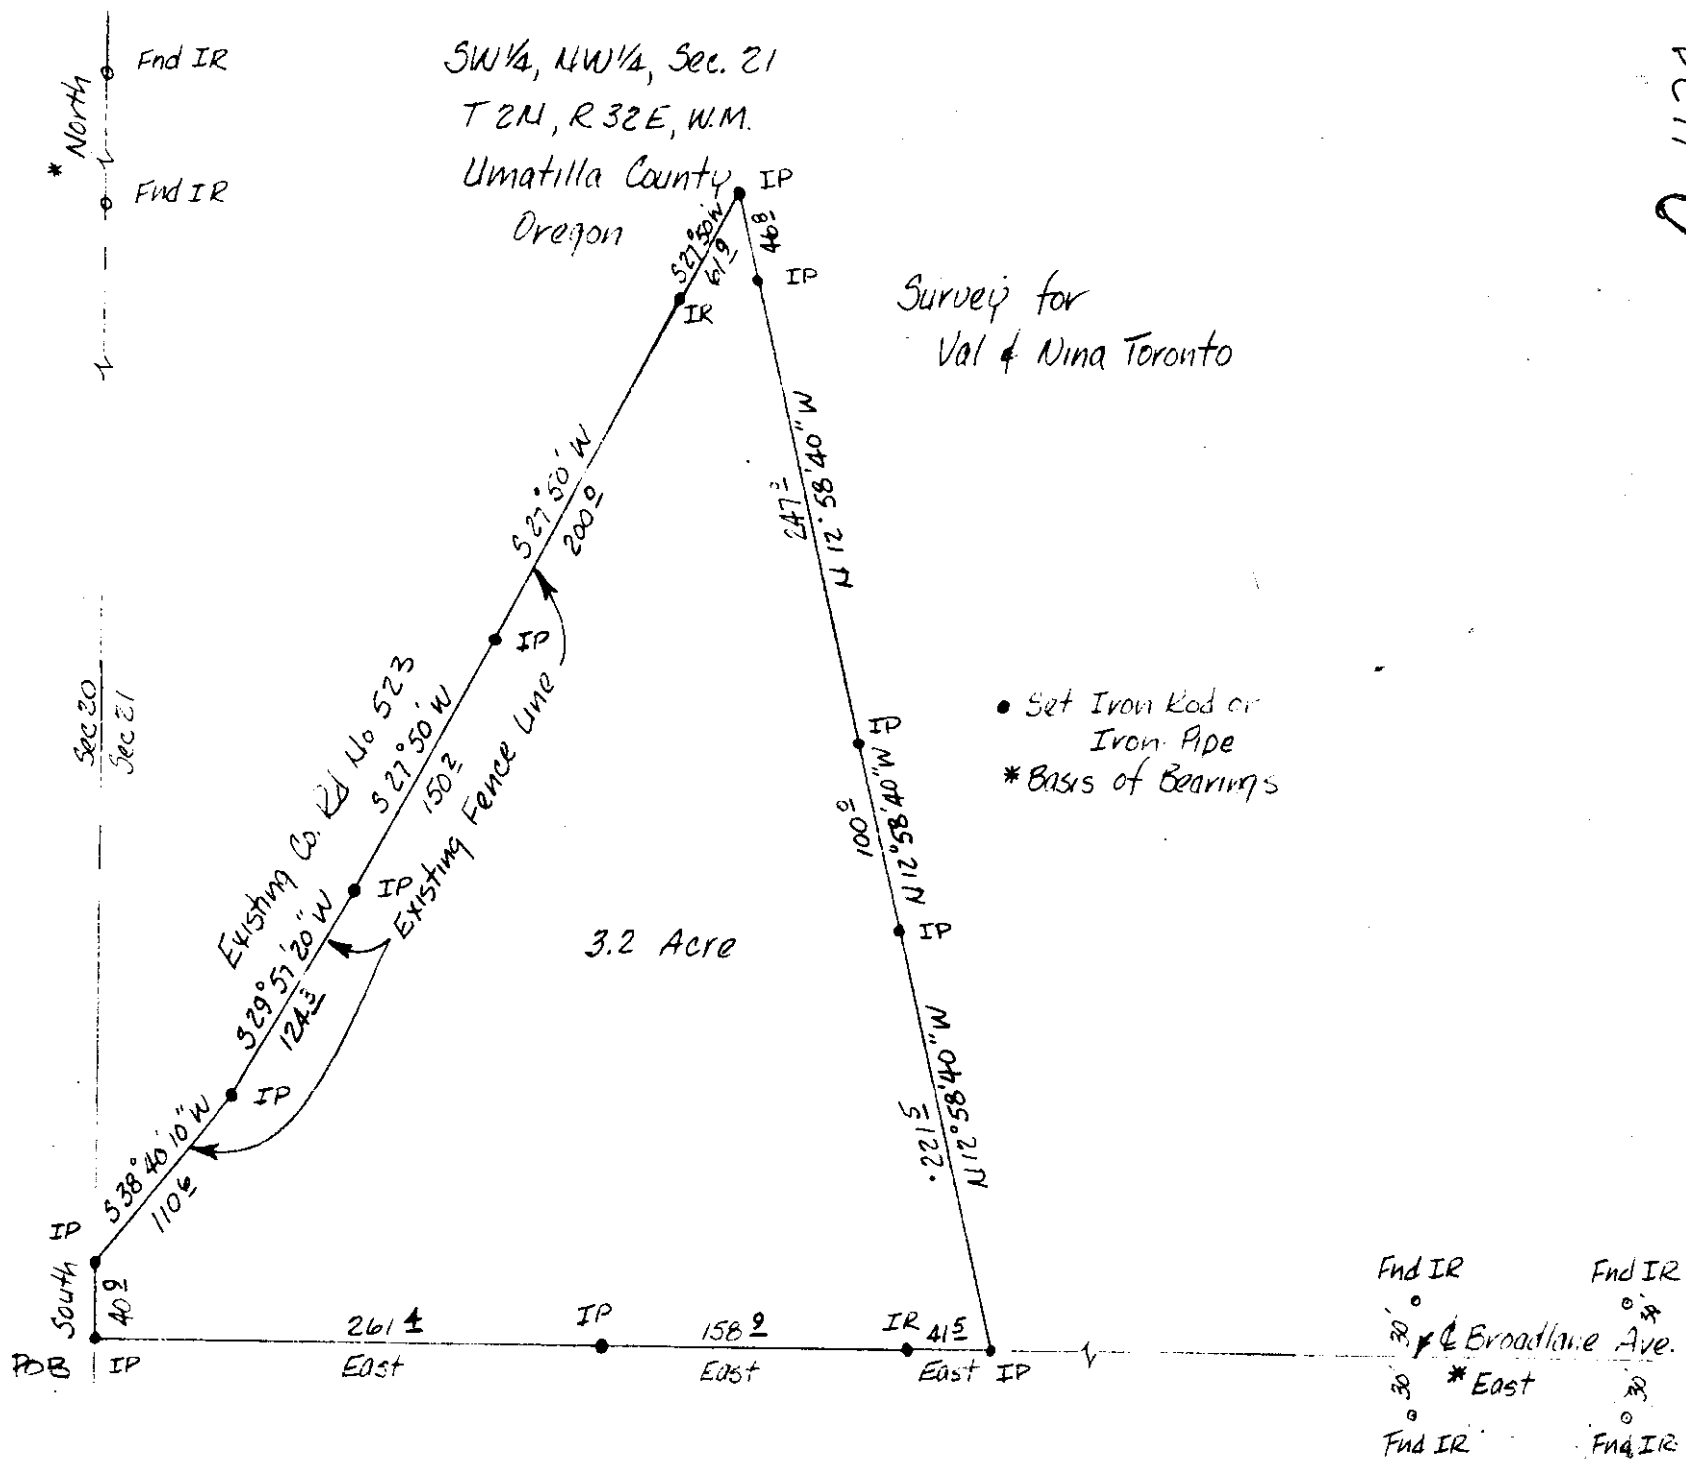 Fnd IR
* North
Fnd IR
SW¼, NW¼, Sec. 21
T 2N, R 32E, W.M.
Umatilla County
Oregon
IP
S27°50'W
61.9
46.8
IP
IR
Survey for
Val & Nina Toronto
S 27° 50' W
200.0
247.2
N 12° 58' 40" W
IP
Sec 20
Sec 21
Existing Co. Rd No 523
S 27° 50' W
150.2
Existing Fence Line
IP
IP
100.0
N 12° 58' 40" W
IP
• Set Iron Rod or
Iron Pipe
* Basis of Bearings
3.2 Acre
S 29° 57' 20" W
124.3
IP
S 38° 40' 10" W
110.6
221.5
N 12° 58' 40" W
IP
South
40.9
POB
IP
261.4
East
IP
158.9
East
IR
41.5
East
IP
Fnd IR
Fnd IR
30'
30'
℄ Broadlane Ave.
* East
30'
30
Fnd IR
Fnd IR